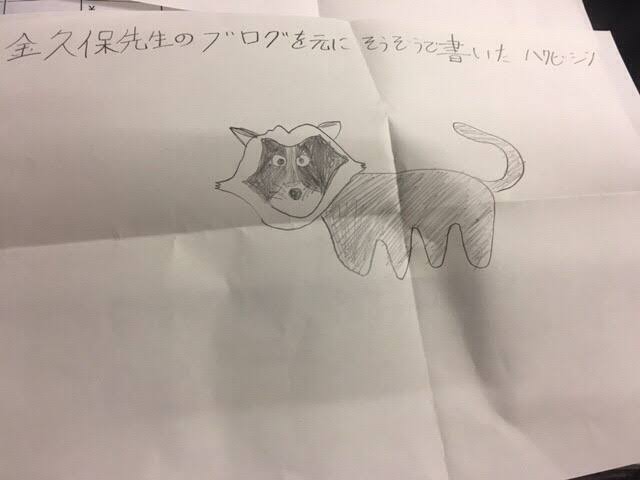 金久保先生のブログを元にそうぞうで書いたハクビシン